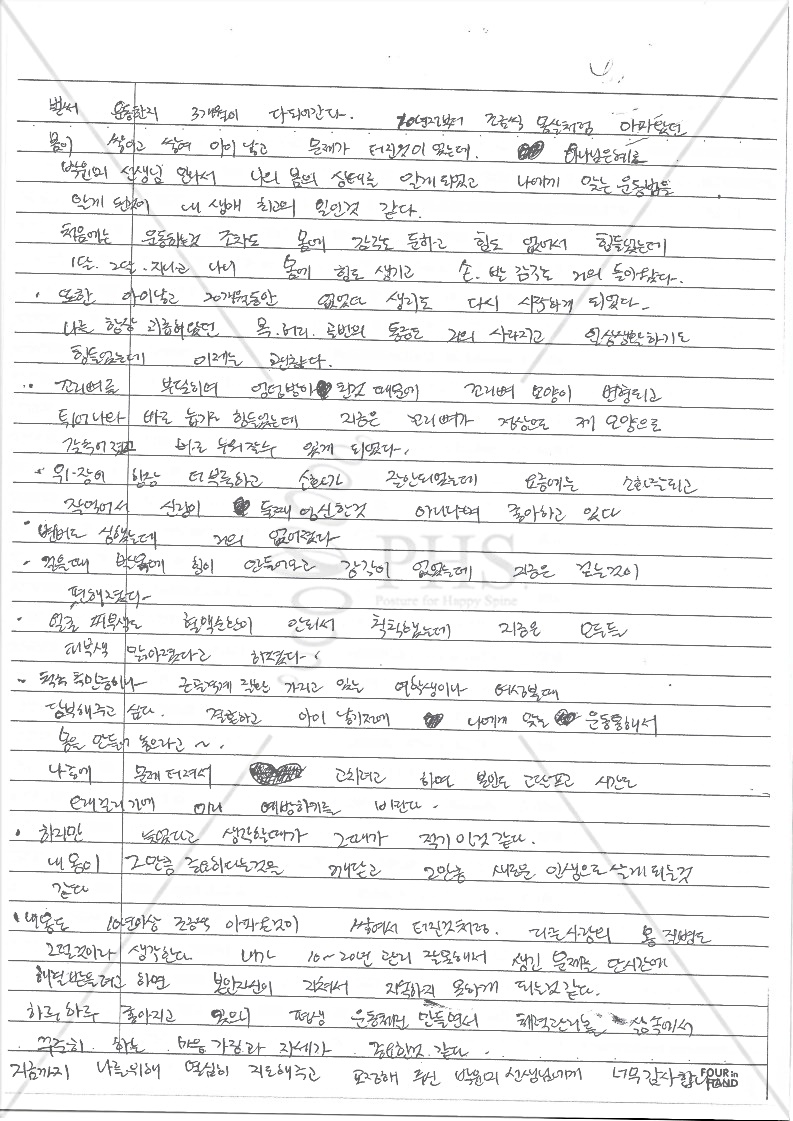 벌써 운동한지 3개월이 다되어간다. 10년전부터 조금씩 몸살처럼 아파왔던
몸이 쌓이고 쌓여 아이 낳고 문제가 터진것이 있는데. 하나님은혜로
박윤미 선생님 만나서 나의 몸의 상태를 알게되었고 나에게 맞는 운동법을
알게 된것이 내 생애 최고의 일인것 같다.
처음에는 운동하는것 조차도 몸에 감각도 둔하고 힘도 없어서 힘들었는데
1달. 2달. 지나고 나니 몸에 힘도 생기고 손. 발 감각도 거의 돌아왔다.
· 또한 아이낳고 20개월동안 없었던 생리도 다시 시작하게 되었다.
나를 항상 괴롭혀왔던 목. 허리. 골반의 통증도 거의 사라지고 일상생활하기도
힘들었는데 이제는 괜찮다.
· 꼬리뼈를 부딪히며 엉덩방아 된것 때문에 꼬리뼈 모양이 변형되고
튀어나와 바로 눕기도 힘들었는데 지금은 꼬리뼈가 정상으로 제 모양으로
바로 누워잘수 있게 되었다.
· 위·장이 항상 더부룩하고 소화가 잘안되었는데 요즘에는 소화잘되고
작년에서 신랑이 둘째 임신한것 아니냐며 좋아하고 있다
· 변비도 심했는데 거의 없어졌다
· 걸을때 발목에 힘이 안들어오고 감각이 없었는데 지금은 걷는것이
편해졌다
· 얼굴 피부색도 혈액순환이 안되서 칙칙했는데 지금은 모두들
피부색 맑아졌다고 하셨다.
· 척추 측만증이나 근골격계 질환 가지고 있는 여학생이나 여성분께
당부해주고 싶다. 결혼하고 아이 낳기전에 나에게 맞는 운동통해서
몸을 만들어 놓으라고 ~.
나중에 문제 터져서 고치려고 하면 본인도 고달프고 시간도
오래걸리기에 미리 예방하기를 바란다.
· 하지만 늦었다고 생각할때가 그때가 적기 인것 같다.
내 몸이 그만큼 중요하다는것을 깨닫고 그만큼 새로운 인생으로 살게 되는것
같다
· 내몸도 10년이상 조금씩 아파온것이 쌓여서 터진것처럼. 다른사람의 몸 질병도
그럴것이라 생각한다. 내가 10~20년 관리 잘못해서 생긴 문제는 단시간에
해결받을려고 하면 본인자신이 지쳐서 지속하지 못하게 되는것 같다.
하루, 하루 좋아지고 있으니 평생 운동패턴 만들면서 체력관리를 삶속에서
꾸준히 하는 마음 가짐과 자세가 중요한것 같다
지금까지 나를위해 열심히 지도해주고 교정해 주신 박윤미 선생님에게 너무 감사합니다
FOUR in HAND
PHS.
Posture for Happy Spine